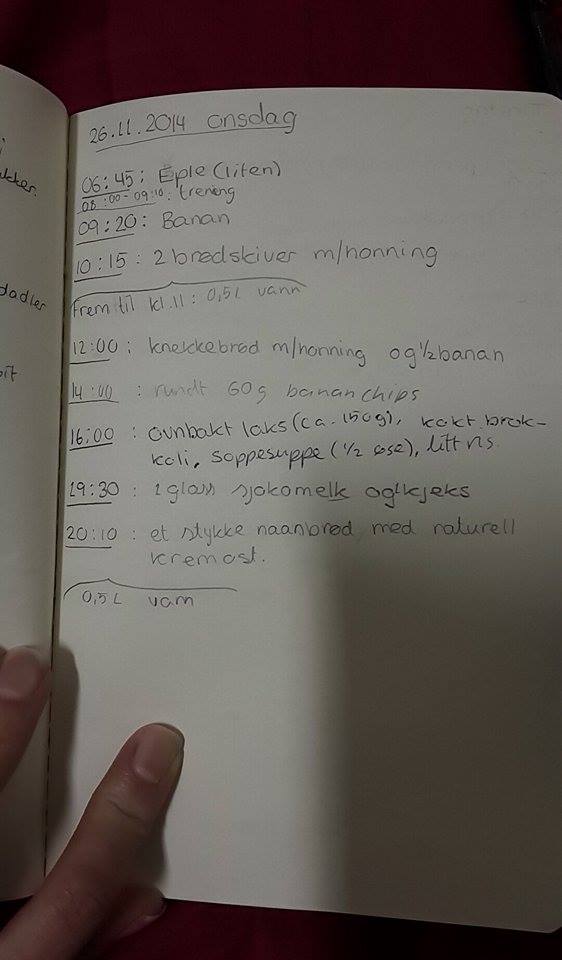 26.11.2014 onsdag
06:45: Eple (liten)
08:00-09:10: trening
09:20: Banan
10:15: 2 brødskiver m/honning
Frem til kl.11: 0,5L vann
12:00: knekkebrød m/honning og 1/2 banan
14:00: rundt 60g bananchips
16:00: ovnbakt laks (ca. 150g), kokt brok-
koli, soppesuppe (1/2 øse), litt ris.
19:30: 1 glass sjokomelk og 1 kjeks
20:10: et stykke naanbrød med naturell
kremost.
0,5L vann
kker.
dadler